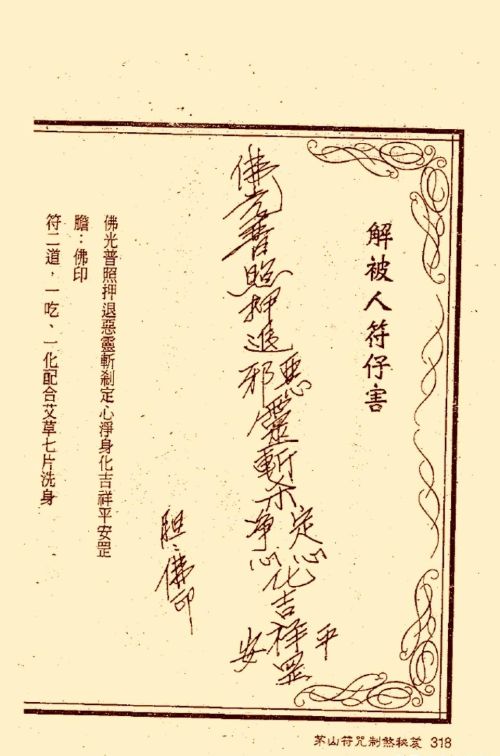 解被人符仔害
佛光普照押退邪惡靈斬杀淨心定心化吉祥平安罡
胆:佛印
佛光普照押退惡靈斬剎定心淨身化吉祥平安罡
膽:佛印
符二道,一吃、一化配合艾草七片洗身
茅山符咒制煞秘笈 318